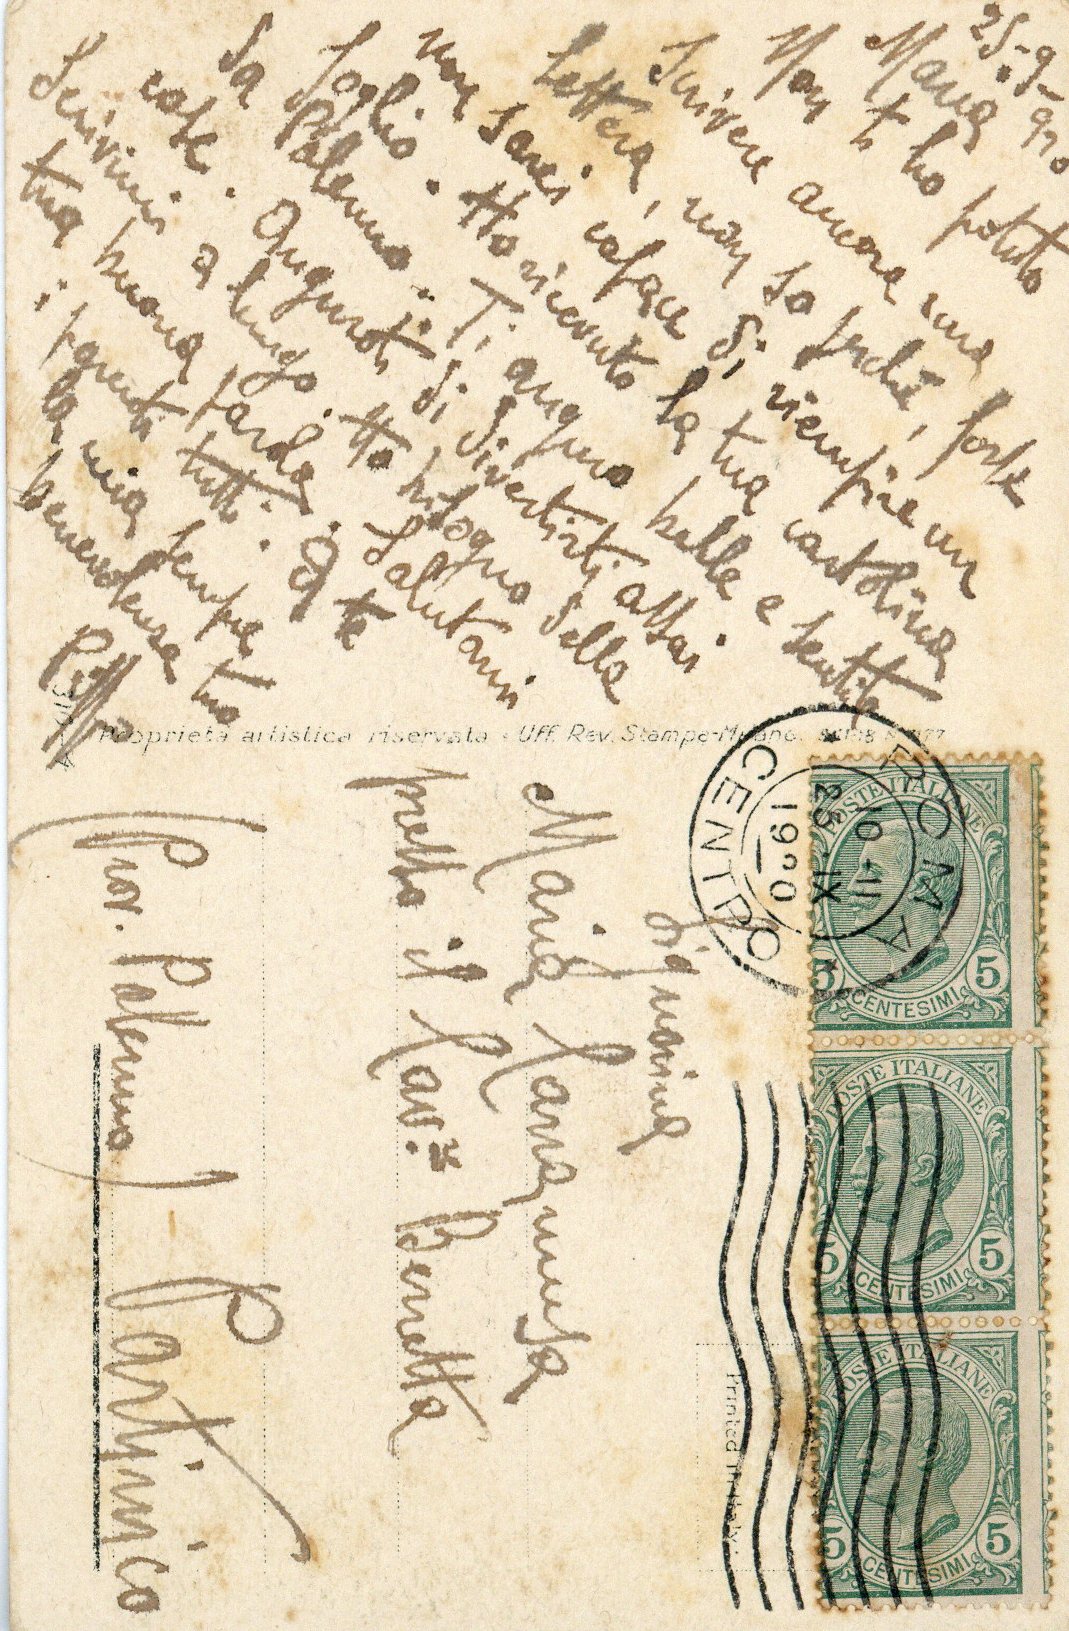 25-9-920
Maria
Non ti ho potuto
scrivere ancora una
lettera, non so perché, forse
non sarei capace di riempire un
foglio. Ho ricevuto la tua cartolina
da Palermo. Ti auguro belle e sentite
cose. Auguroti di divertirti assai
Scrivimi a lungo. Ho bisogno della
tua buona parola. Salutami
i parenti tutti. A te
la mia sempre
benevolenza tuo
Proprietà artistica riservata - Uff. Rev. Stampe-Milano.
ROMA CENTRO
10-11
25 IX
1920
POSTE ITALIANE
5 CENTESIMI 5
POSTE ITALIANE
5 CENTESIMI 5
POSTE ITALIANE
5 CENTESIMI 5
Printed in Italy.
Signorina
Maria
presso il Cav.
Partinico
(Prov. Palermo)